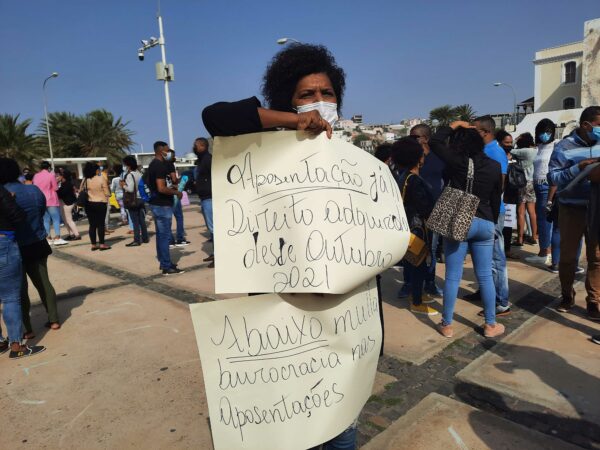 Aposentação já
Direito adquirido
desde Outubro
2021
Abaixo muita
burocracia nas
Aposentações